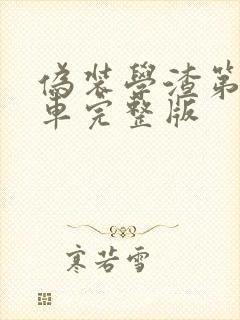 偽装學渣第
車完整版
寒若雪